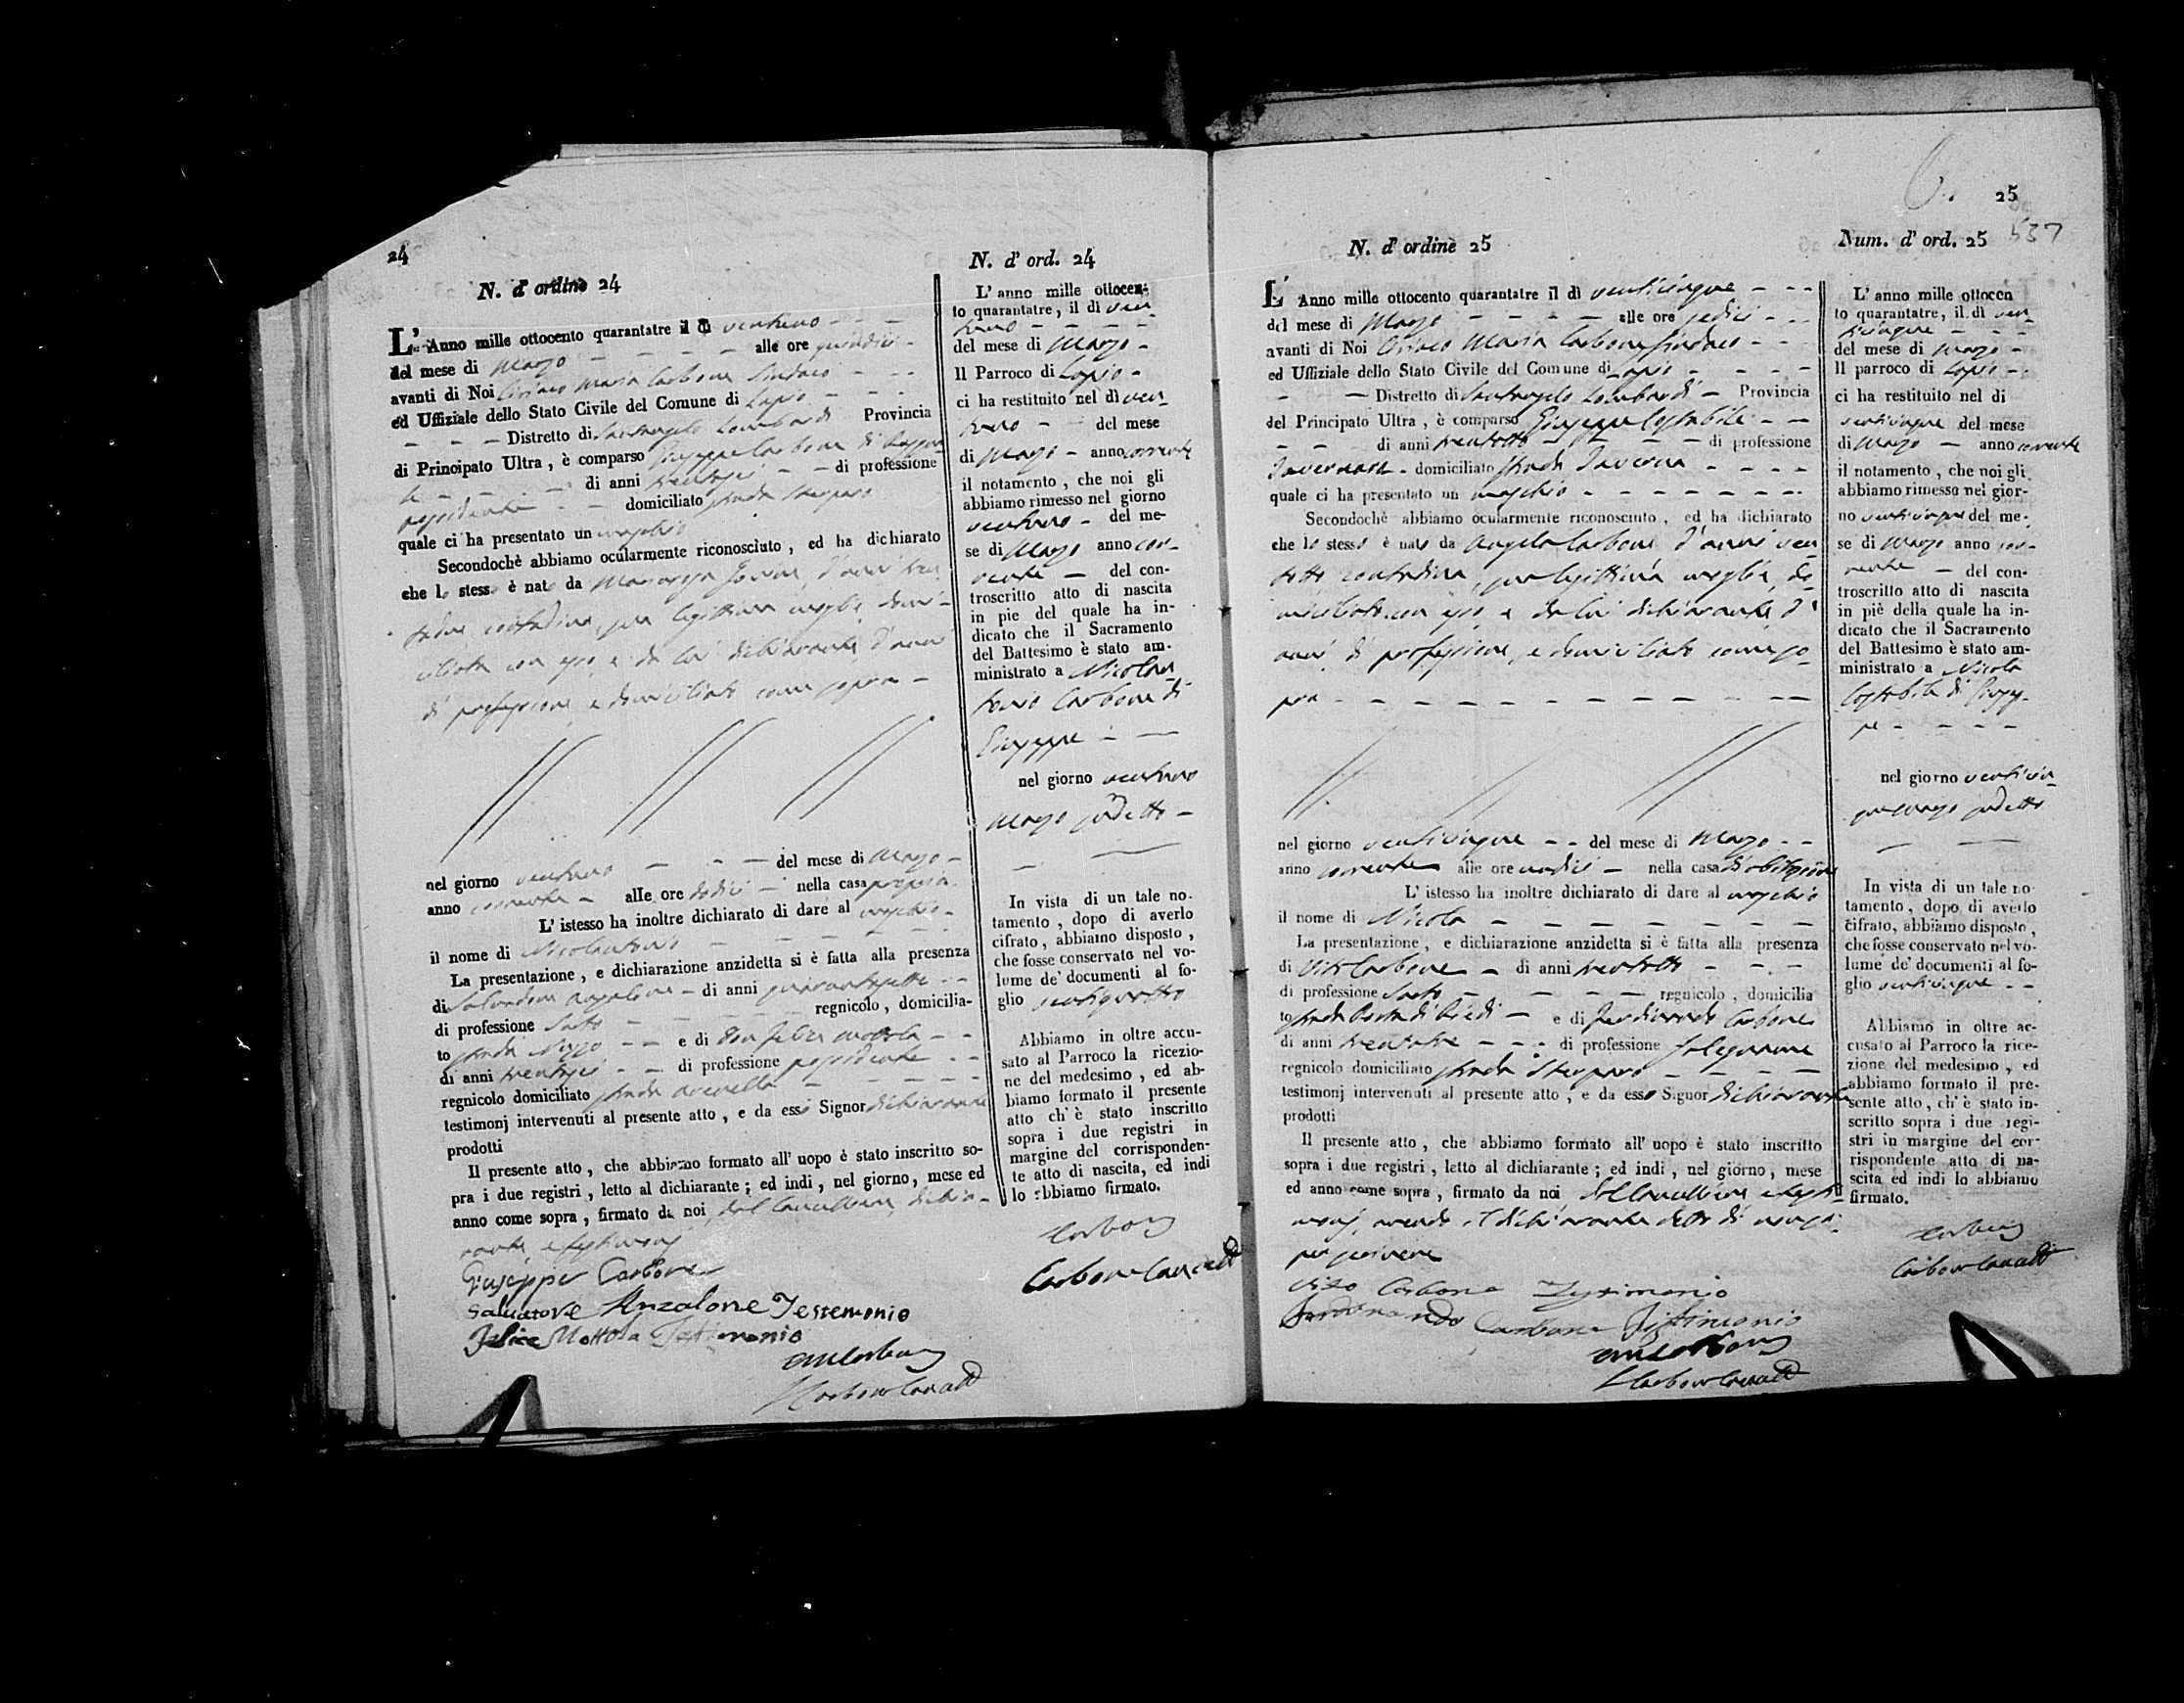 24
N. d' ordine 24
L' Anno mille ottocento quarantatre il dì ventuno
del mese di Marzo alle ore quindici
avanti di Noi Ciriaco Maria Carbone Sindaco
ed Uffiziale dello Stato Civile del Comune di Lapio
Distretto di Santangelo Lombardi Provincia
di Principato Ultra, è comparso Giuseppe Carbone di
di anni trentasei di professione
possidente domiciliato strada
quale ci ha presentato un maschio
Secondochè abbiamo ocularmente riconosciuto, ed ha dichiarato
che lo stesso è nato da d'anni tren
contadina, sua legittima moglie domi-
ciliata con esso, e da lui dichiarante d'anni
di professione, e domiciliato come sopra
nel giorno ventuno del mese di Marzo
anno corrente alle ore dodici nella casa propria
L' istesso ha inoltre dichiarato di dare al maschio
il nome di Nicolantonio
La presentazione, e dichiarazione anzidetta si è fatta alla presenza
di Salvadore Anzalone di anni quarantasette
di professione Sarto regnicolo, domicilia-
to strada e di Don Felice Mottola
di anni trentasei di professione possidente
regnicolo domiciliato strada
testimonj intervenuti al presente atto, e da esso Signor dichiarante
prodotti
Il presente atto, che abbiamo formato all' uopo è stato inscritto so-
pra i due registri, letto al dichiarante; ed indi, nel giorno, mese ed
anno come sopra, firmato da noi, dal Cancelliere, dichia-
rante, e testimonj
Giuseppe Carbone
Salvatore Anzalone Testemonio
Felice Mottola Testimonio
Carbone
Carbone Canc
N. d' ord. 24
L' anno mille ottocen-
to quarantatre, il dì ven
tuno
del mese di Marzo
Il Parroco di Lapio
ci ha restituito nel dì ven
tuno del mese
di Marzo anno corrente
il notamento, che noi gli
abbiamo rimesso nel giorno
ventuno del me-
se di Marzo anno cor-
rente del con-
troscritto atto di nascita
in pie del quale ha in-
dicato che il Sacramento
del Battesimo è stato am-
ministrato a Nicolan
tonio Carbone di
Giuseppe
nel giorno ventuno
Marzo sudetto
In vista di un tale no-
tamento, dopo di averlo
cifrato, abbiamo disposto,
che fosse conservato nel vo-
lume de' documenti al fo-
glio ventiquattro
Abbiamo in oltre accu-
sato al Parroco la ricezio-
ne del medesimo, ed ab-
biamo formato il presente
atto ch' è stato inscritto
sopra i due registri in
margine del corrisponden-
te atto di nascita, ed indi
lo abbiamo firmato.
Carbone
Carbone Canc
25
537
N. d' ordine 25
L' Anno mille ottocento quarantatre il dì venticinque
del mese di Marzo alle ore sedici
avanti di Noi Ciriaco Maria Carbone Sindaco
ed Uffiziale dello Stato Civile del Comune di Lapio
Distretto di Santangelo Lombardi Provincia
del Principato Ultra, è comparso Giuseppe Costabile
di anni trentotto di professione
Tavernaro domiciliato strada Taverna
quale ci ha presentato un maschio
Secondochè abbiamo ocularmente riconosciuto, ed ha dichiarato
che lo stesso è nato da Angela Carbone d'anni ven
totto contadina, sua legittima moglie, do
miciliata con esso, e da lui dichiarante d'
anni, di professione, e domiciliato come so-
pra
nel giorno venticinque del mese di Marzo
anno corrente alle ore undici nella casa d'abitazione
L' istesso ha inoltre dichiarato di dare al maschio
il nome di Nicola
La presentazione, e dichiarazione anzidetta si è fatta alla presenza
di Vito Carbone di anni trentotto
di professione Sarto regnicolo, domicilia
to strada e di Ferdinando Carbone
di anni trentatre di professione Falegname
regnicolo domiciliato strada
testimonj intervenuti al presente atto, e da esso Signor dichiarante
prodotti
Il presente atto, che abbiamo formato all' uopo è stato inscritto
sopra i due registri, letto al dichiarante; ed indi, nel giorno, mese
ed anno come sopra, firmato da noi dal Cancelliere e testi-
monj, avendo il dichiarante detto di non sa-
per scrivere
Vito Carbone Testimonio
Ferdinando Carbone Testimonio
Carbone
Carbone Canc
Num. d' ord. 25
L' anno mille ottocen
to quarantatre, il dì ven
ticinque
del mese di Marzo
Il parroco di Lapio
ci ha restituito nel dì
venticinque del mese
di Marzo anno corrente
il notamento, che noi gli
abbiamo rimesso nel gior-
no venticinque del me-
se di Marzo anno cor-
rente del con-
troscritto atto di nascita
in piè della quale ha in-
dicato che il Sacramento
del Battesimo è stato am-
ministrato a Nicola
Costabile di Giusep-
pe
nel giorno venticin
que Marzo sudetto
In vista di un tale no-
tamento, dopo di averlo
cifrato, abbiamo disposto,
che fosse conservato nel vo-
lume de' documenti al fo-
glio venticinque
Abbiamo in oltre ac-
cusato al Parroco la rice-
zione del medesimo, ed
abbiamo formato il pre-
sente atto, ch' è stato in-
scritto sopra i due regi-
stri in margine del cor-
rispondente atto di na-
scita ed indi lo abbiamo
firmato.
Carbone
Carbone Canc